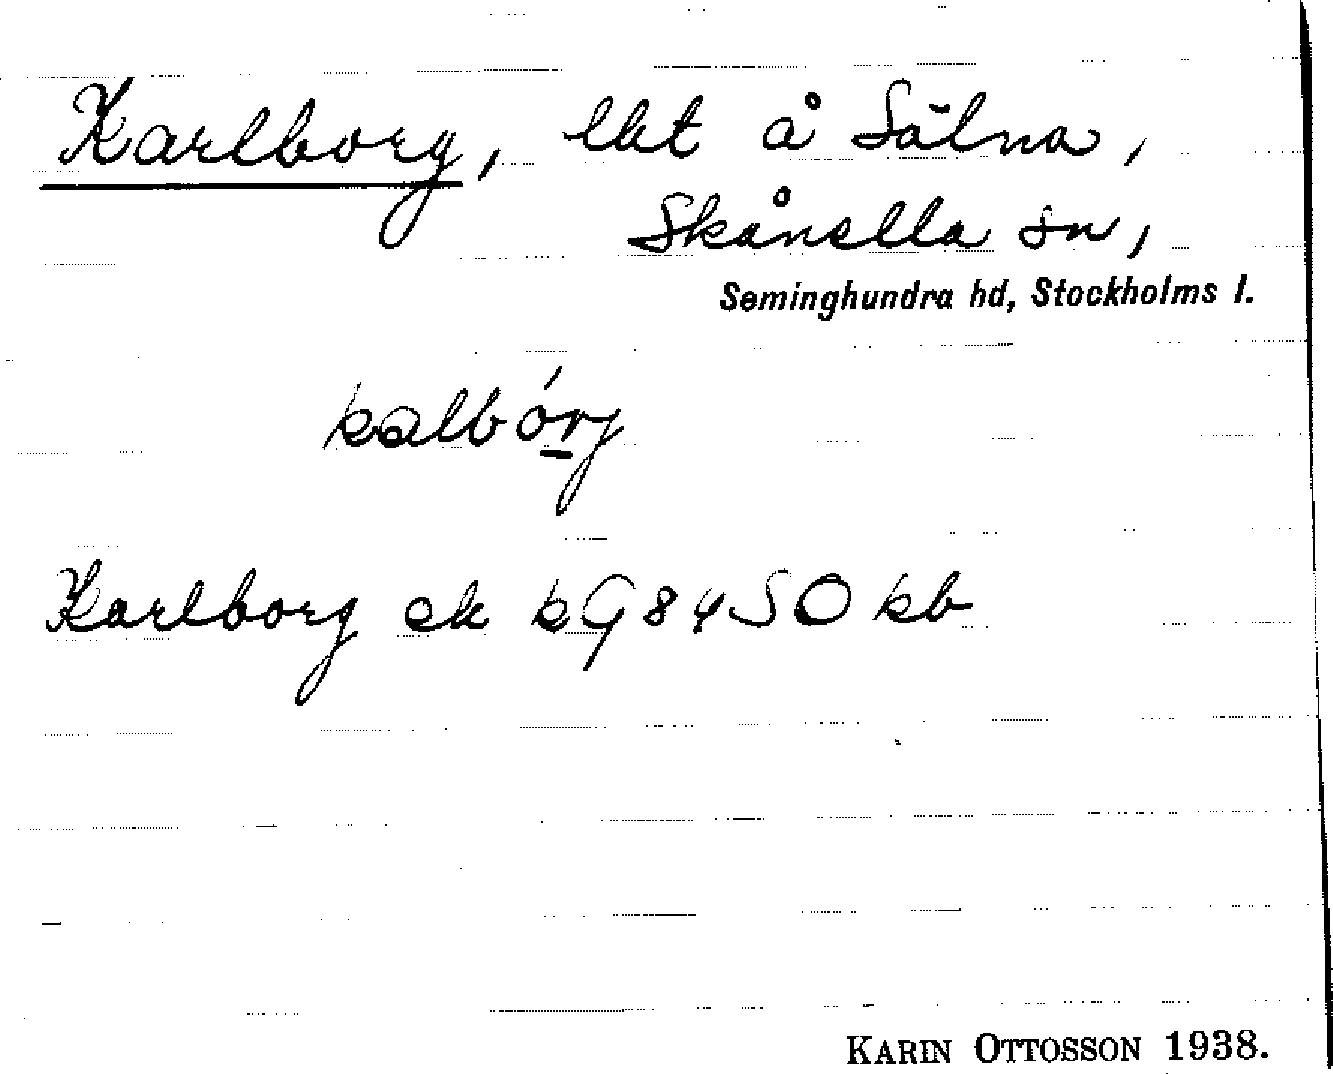 Karlborg, lht å Sälna,
Skånella sn,
Seminghundra hd, Stockholms l.
kalbórj
Karlborg ek kG8450 kb
KARIN OTTOSSON 1938.